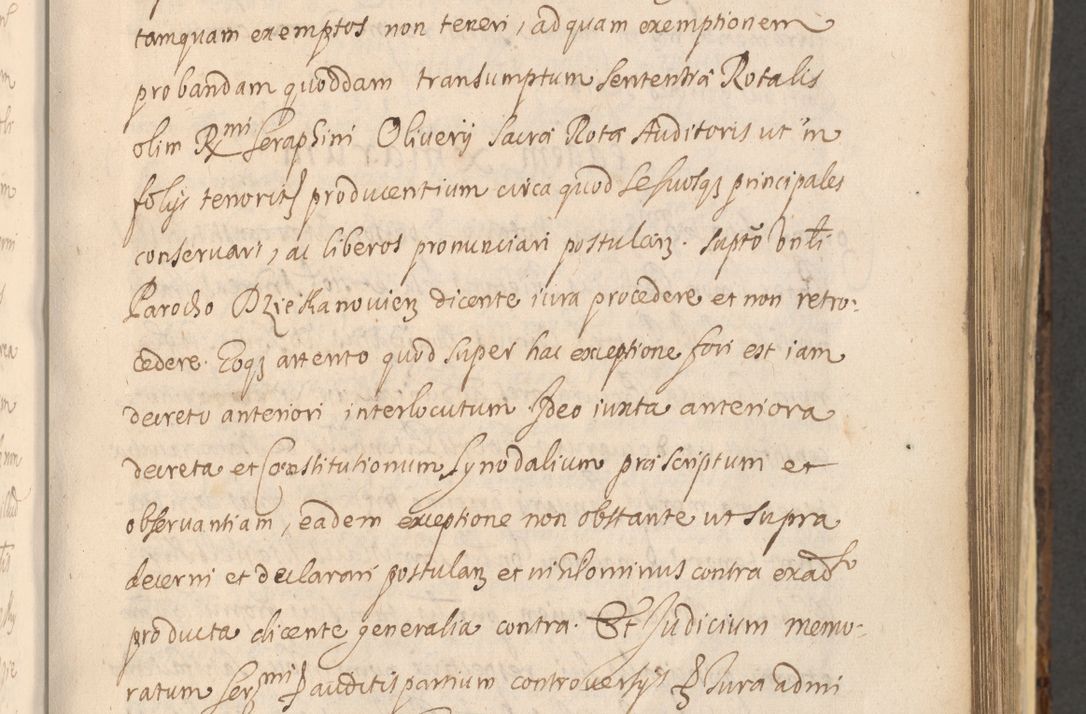 tamquam exemptos non teneri, ad quam exemptionem
probandam quoddam transumptum sententiæ Rotalis
olim Rmi Seraphini Oliverij sacræ Rotæ Auditoris ut in
folijs tenorit producentium circa quod se suosq principales
conservari, ac liberos pronunciari postulan. supto
Parocho Dziekanovien dicente iura procedere et non retro:
cedere. Eoq attento quod super hac exceptione fori est iam
decreto anteriori interlocutum Ideo iuxta anteriora
decreta et Constitutionum Synodalium præscriptum et
observantiam, eadem exceptione non obstante ut supra
decerni et declarari postulan et nihilominus contra exad
producta dicente generalia contra. Et Judicium memo:
ratum Sermi auditis partium controversijs Jura admi